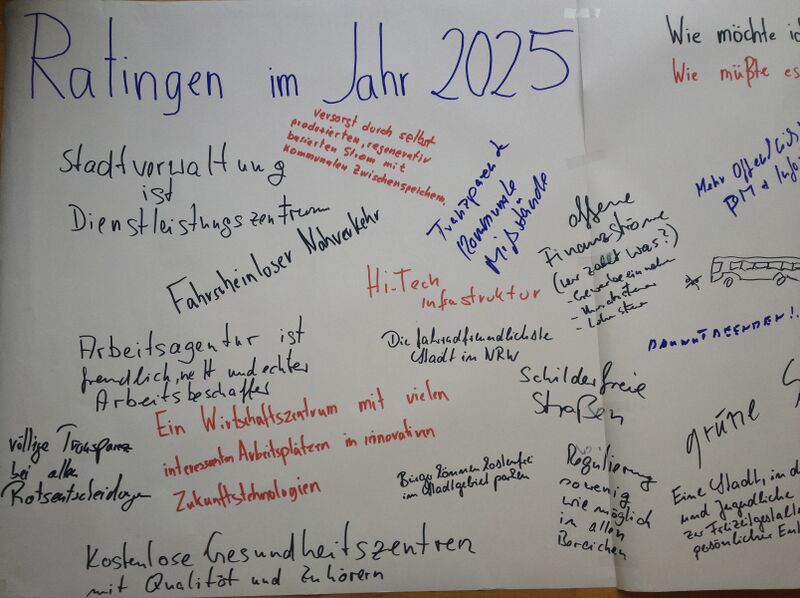 Ratingen im Jahr 2025
Wie möchte ic
Wie müßte es
versorgt durch selbst
produzierten, regenerativ
basierten Strom mit
kommunalen Zwischenspeichern
Stadtverwaltung
ist
Dienstleistungszentrum
Fahrscheinloser Nahverkehr
Transparenz
Kommunale
Mißstände
offene
Finanzströme
(wer zahlt was?)
- Gewerbeeinnahmen
- Lohnsteuer
Mehr Offen
BM + Info
Hi-Tech
infrastruktur
Arbeitsagentur ist
freundlich, nett und echter
Arbeitsbeschaffer
Die fahrradfreundlichste
Stadt in NRW
Schilderfreie
Straßen
grüne
Ein Wirtschaftszentrum mit vielen
interessanten Arbeitsplätzen in innovativen
Zukunftstechnologien
völlige Transparenz
bei allen
Ratsentscheidungen
Bürger können kostenfrei
im Stadtgebiet parken
Regulierung
so wenig
wie möglich
in allen
Bereichen
Eine Stadt, in d
und Jugendliche
zur Freizeitgestalt
persönlicher Ent
Kostenlose Gesundheitszentren
mit Qualität und Zuhören